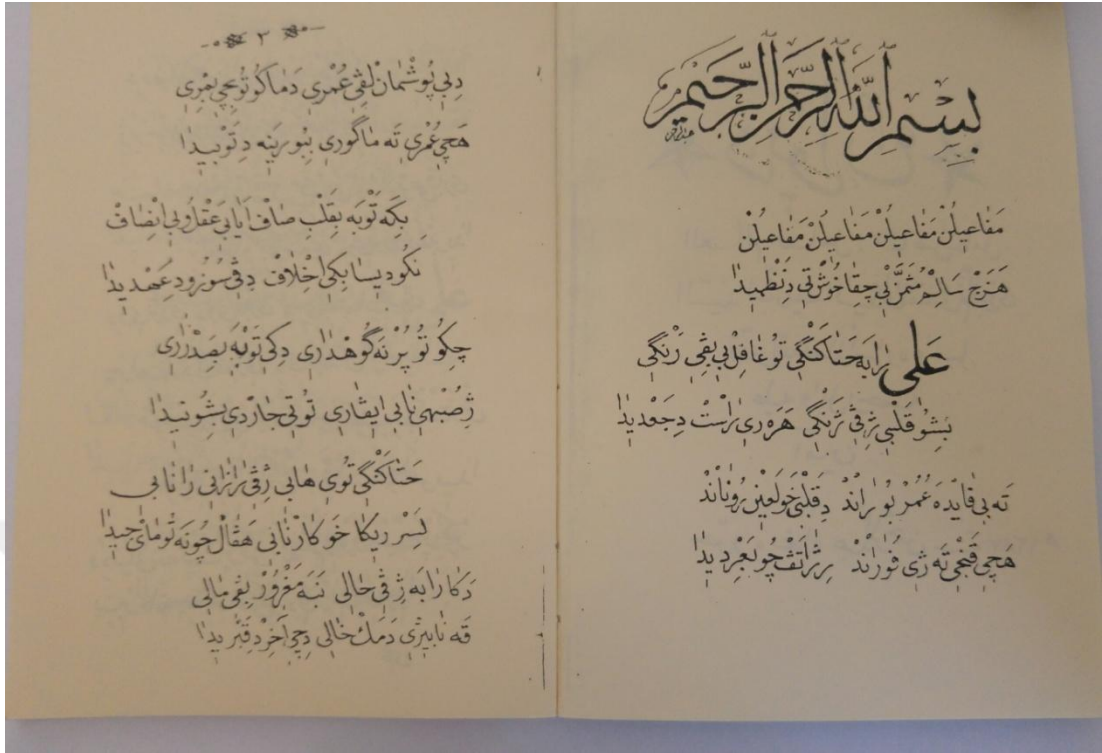 بِسْمِ اللّٰهِ الرَّحْمٰنِ الرَّحِيمِ
مَفَاعِيلُنْ مَفَاعِيلُنْ مَفَاعِيلُنْ مَفَاعِيلُنْ
هَزَجْ سَالِمْ مُثَمَّنْ بِي چِقَا خُوشْ تِي دِنَظْمِيدَا
عَلِي رَابَه حَتَا كَنْگِي تو غَافِلْ بِي بِڤِي رَنْگِي
بَشُو قَلْبِي ژِڤِي ژَنْگِي هَرَه رِي رَاسْت دِجَعْدِيدَا
تَه بِي فَايِدَه عُمُرْ بُورَانْدْ دِقَلْبِي خَو لَعِينْ رُونَانْدْ
هَچِي قَنْجِي تَه ژِي فَوْرَانْدْ چُو بَعِرْدِيدَا
٢
دِبِي پُوشْمَانْ لِڤِي عُمْرِي دَمَا كُو تُو بِچِي بِمْرِي
هَچِي عُمْرِي تَه مَا گُورِي بِبُورِينَه دِتَوْبِيدَا
بِكَه تَوْبَه بِقَلْبِ صَافْ اَيَا بِي عَقْلُ وبِي اِنْصَافْ
نَكُو دِيسَا بِكِي اِخْلَافْ دِڤِي سُوزُ ودِعَهْدِيدَا
چِكُو تُو پُرْ نَه گُوهْدَارِي دِكِي تَوْبَه بِصَدْزَارِي
ژِصُبْهِي نَابِي اِيڤَارِي تُو تِي جَارْدِي بِشُونِيدَا
حَتَا كَنْگِي تُو يِي هَابِي ژِڤِي رَازَانِي رَانَابِي
لِسَرْ رِيكَا خَو كَارْنَابِي هَڤَالْ چُونَه تُو مَايْ جِيدَا
دَكَا رَابَه ژِڤِي حَالِي نَبَه مَغْرُورْ بِڤِي مَالِي
قَه نَابِيژِي دَمَكْ خَالِي دِچِي آخِرْ دِقَبْرِيدَا